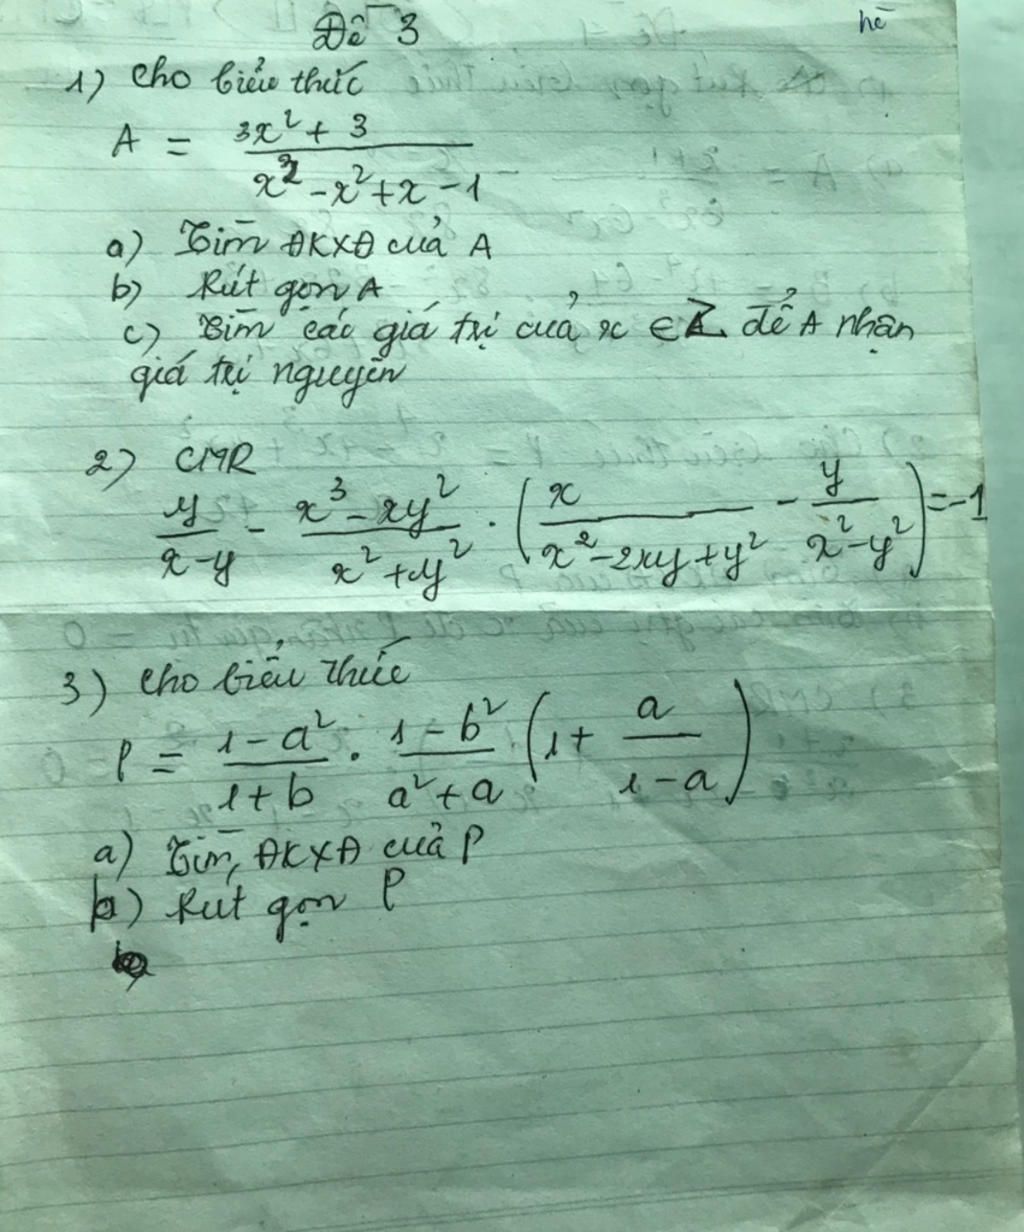 Đề 3
hè
1) Cho biểu thức
A = (3x² + 3)/(x³ - x² + x - 1)
a) Tìm ĐKXĐ của A
b) Rút gọn A
c) Tìm các giá trị của x ∈ Z để A nhận
giá trị nguyên
2) CMR
y/(x-y) - (x³ - xy²)/(x² + y²) · (x/(x² - 2xy + y²) - y/(x² - y²)) = -1
3) Cho biểu thức
P = (1 - a²)/(1 + b) · (1 - b²)/(a² + a) (1 + a/(1 - a))
a) Tìm ĐKXĐ của P
b) Rút gọn P